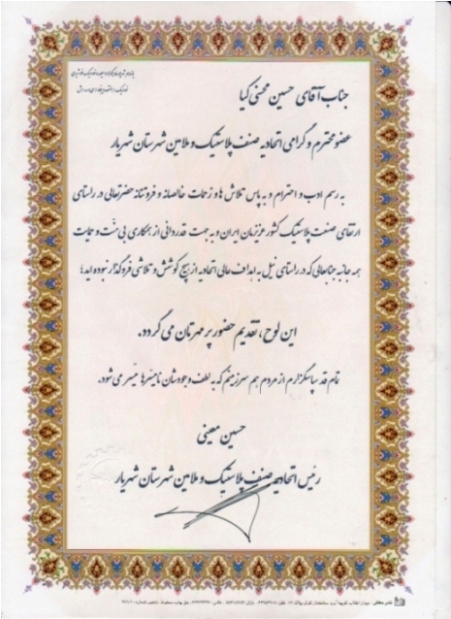 جناب آقای حسین محسنی کیا
عضو محترم و گرامی اتحادیه صنف پلاستیک و ملامین شهرستان شهریار
به رسم ادب و احترام و به پاس تلاش ها و زحمات خالصانه و فروتنانه حضرتعالی در راستای
ارتقای صنعت پلاستیک کشور عزیزمان ایران و به جهت قدردانی از همکاری بی منّت و حمایت
همه جانبه جنابعالی که در راستای نیل به اهداف عالی اتحادیه از هیچ کوشش و تلاشی فروگذار ننموده اید؛
این لوح، تقدیم حضور پر مهرتان می گردد.
تمام قد سپاسگزارم از مردم هم سرزمینم که به لطف وجودشان نامیسرها میسر می شود.
حسین معینی
رئیس اتحادیه صنف پلاستیک و ملامین شهرستان شهریار